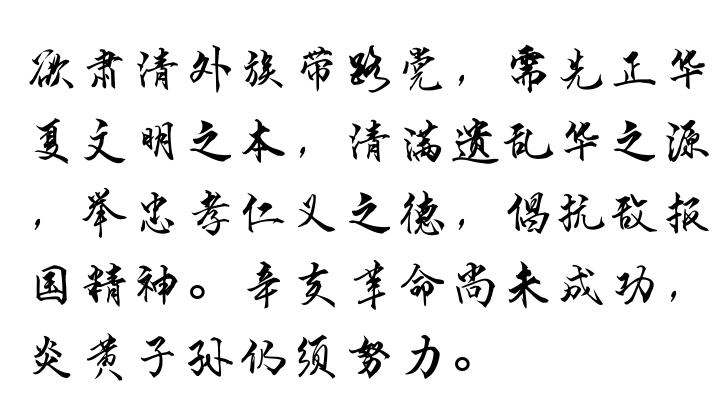 欲肃清外族带路党，需先正华
夏文明之本，清满遗乱华之源
，举忠孝仁义之德，倡抗敌报
国精神。辛亥革命尚未成功，
炎黄子孙仍须努力。